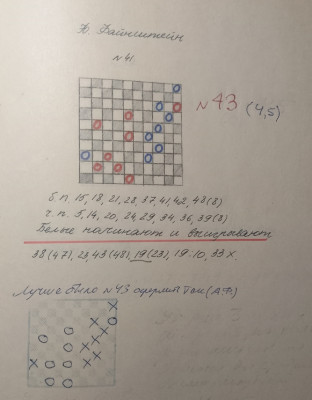 Файнштейн
№41.
№43 (4,5)
б.п. 15, 18, 21, 28, 37, 41, 42, 48 (8)
ч.п. 5, 14, 20, 24, 29, 34, 36, 39 (8)
Белые начинают и выигрывают
38 (47), 23, 43 (48), 19 (23), 19:10, 33 х.
Лучше было №43